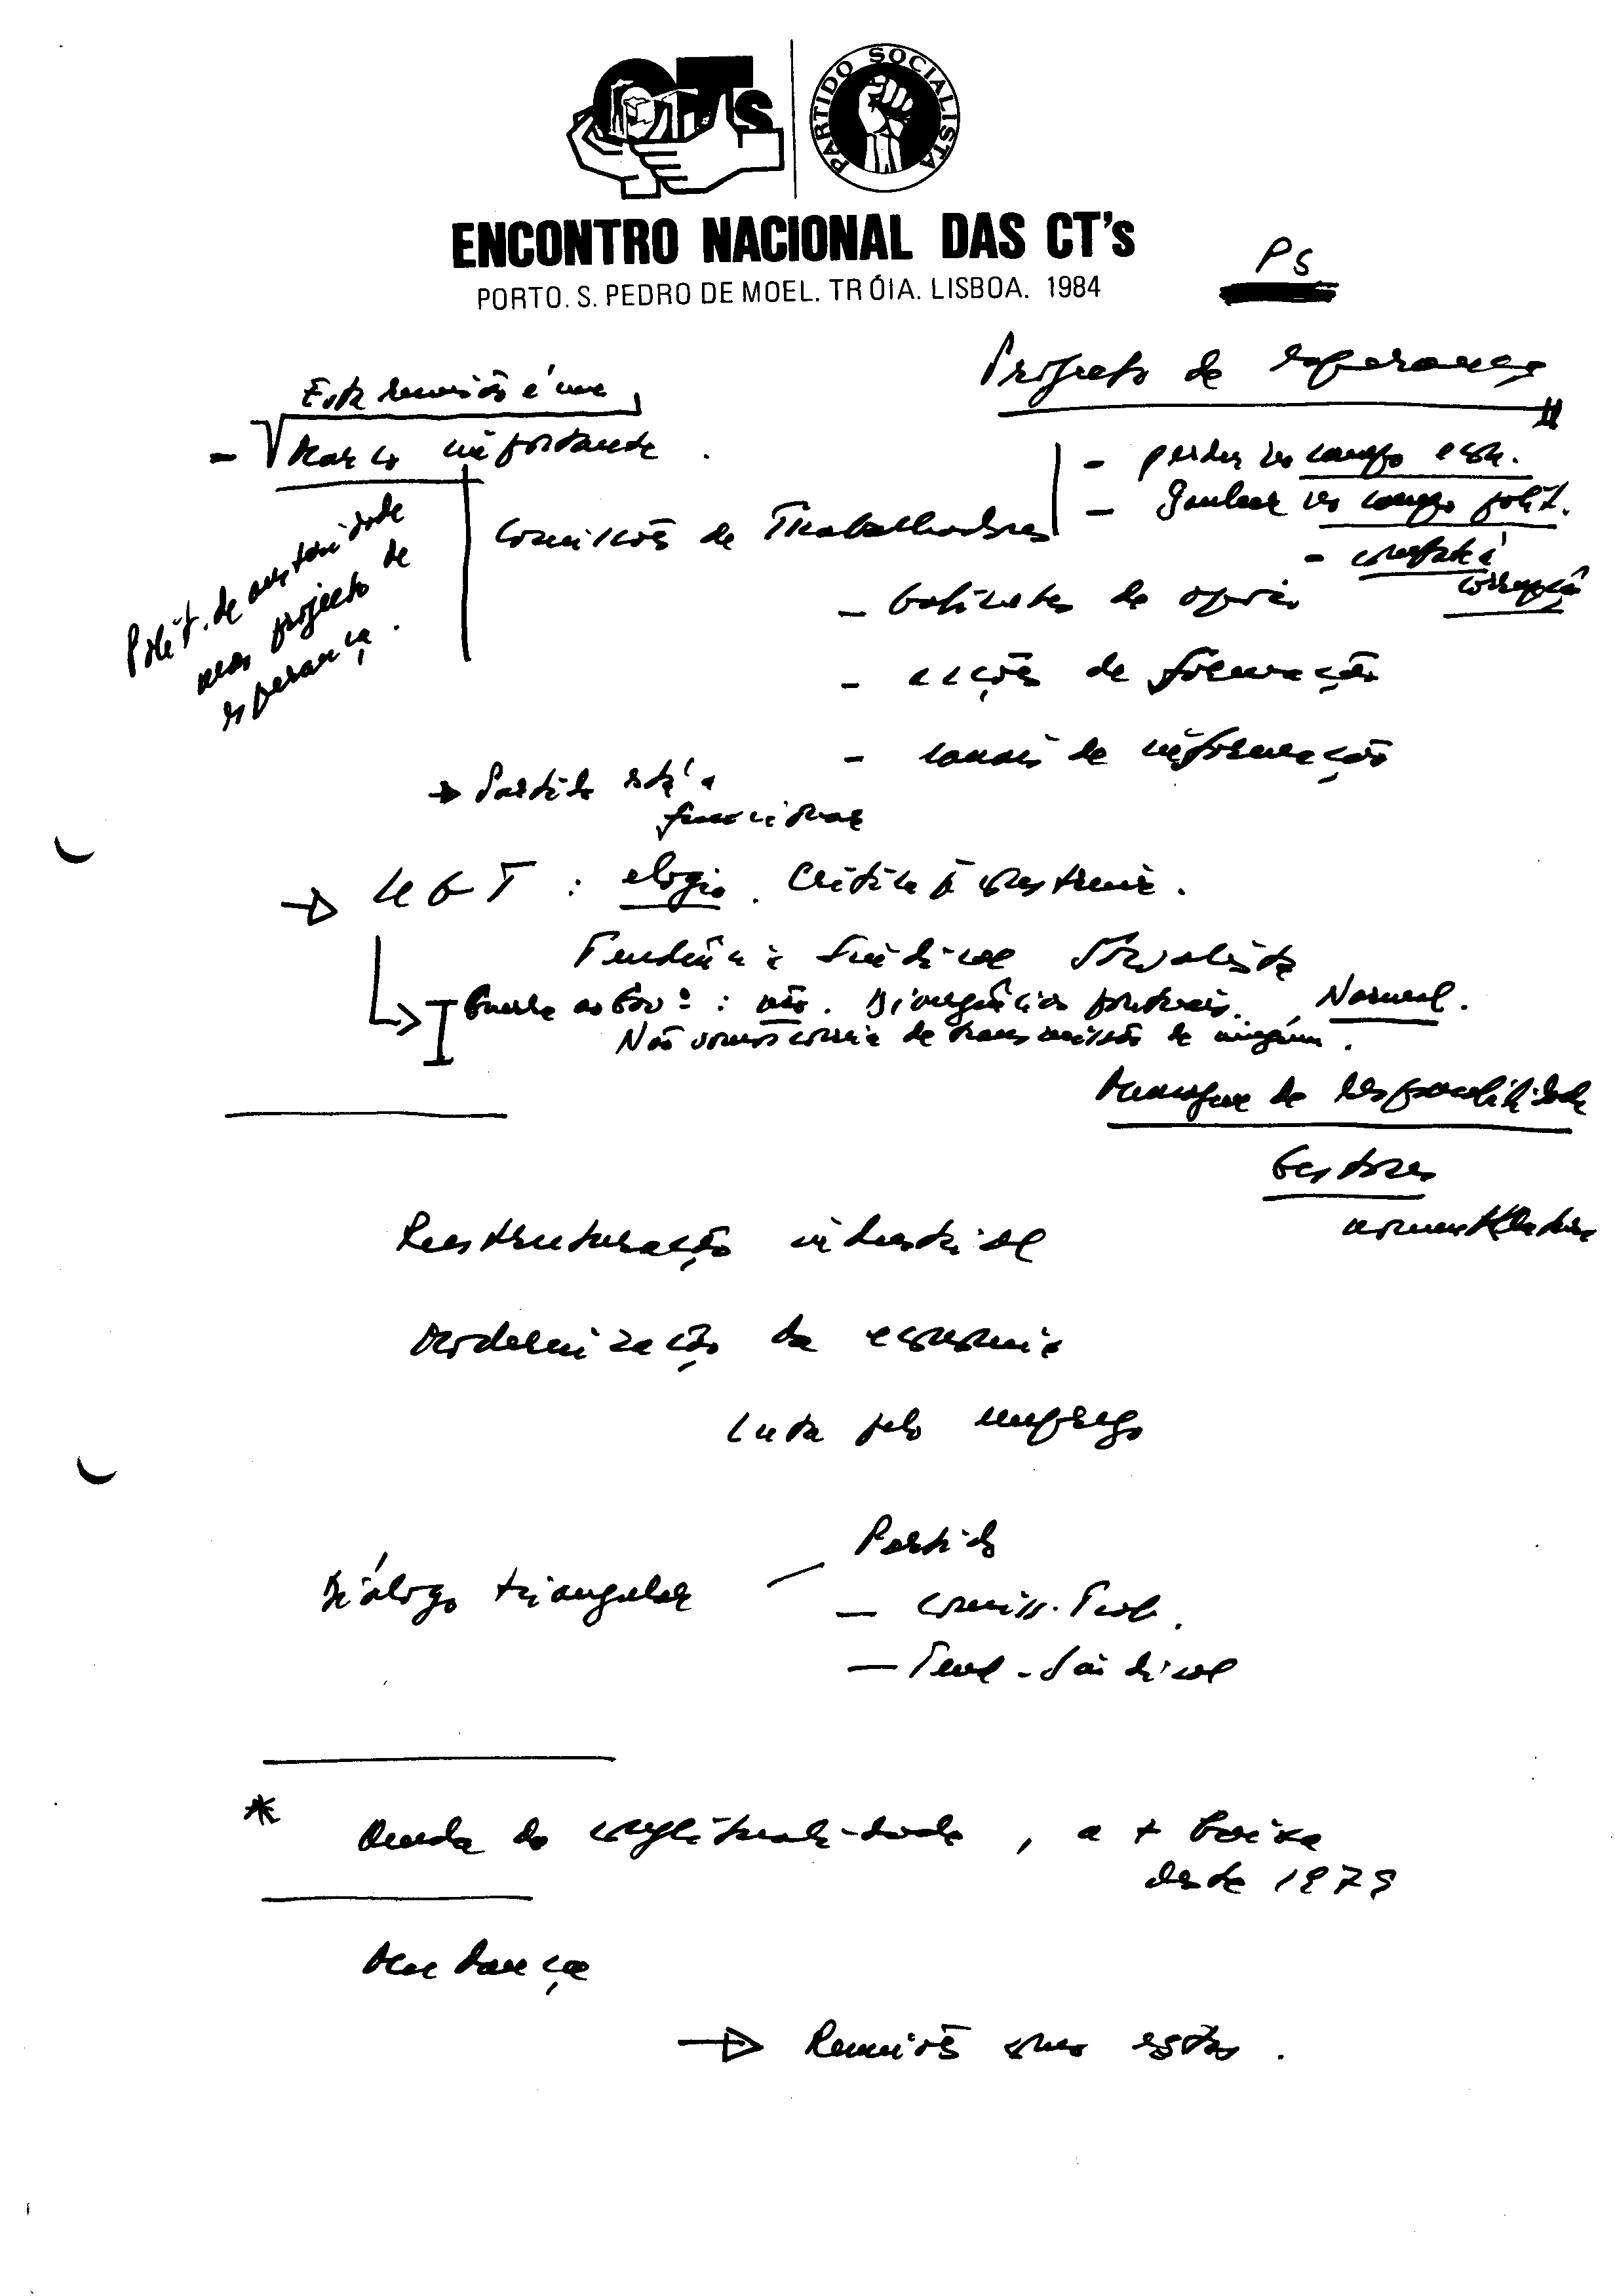 CTs
PARTIDO SOCIALISTA
ENCONTRO NACIONAL DAS CT's
PORTO. S. PEDRO DE MOEL. TRÓIA. LISBOA. 1984
PS
Projecto de esperança
Esta reunião é um
- Marco importante.
- perder no campo econ.
- Ganhar no campo polít.
- combate à
corrupção
Polít. de austeridade
mas projecto de
esperança.
Comissões de Trabalhadores
- Gabinetes de apoio
- acções de formação
- canais de informação
→ Partido está a
funcionar
→ UGT : elogio. Crítica
Tendência Sindical Socialista
Guerra ao Govº : não. Divergências pontuais. Normal.
Não somos correia de transmissão de ninguém.
de responsabilidade
Gestores
Reestruturação industrial
Modernização da economia
Luta pelo emprego
Diálogo triangular — Partido
— Comiss. Trab.
— Tend. Sindical
* Queda da conflitualidade, a + baixa
desde 1979
Mudança
→ Reuniões como estas.